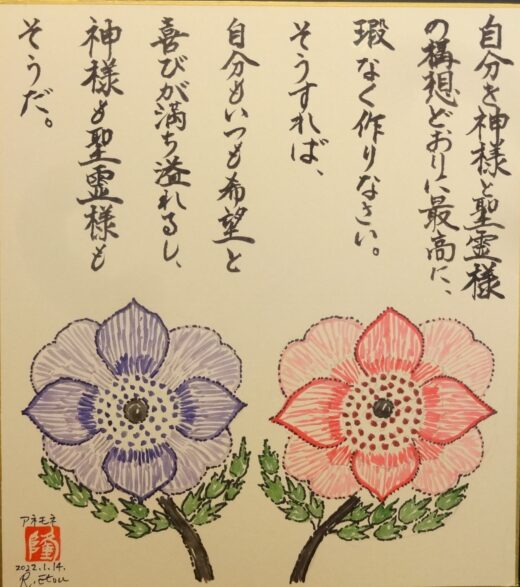 自分を神様と聖霊様
の構想どおりに最高に、
瑕なく作りなさい。
そうすれば、
自分もいつも希望と
喜びが満ち溢れるし、
神様も聖霊様も
そうだ。
アネモネ
隆
2022.1.14.
R.Etou